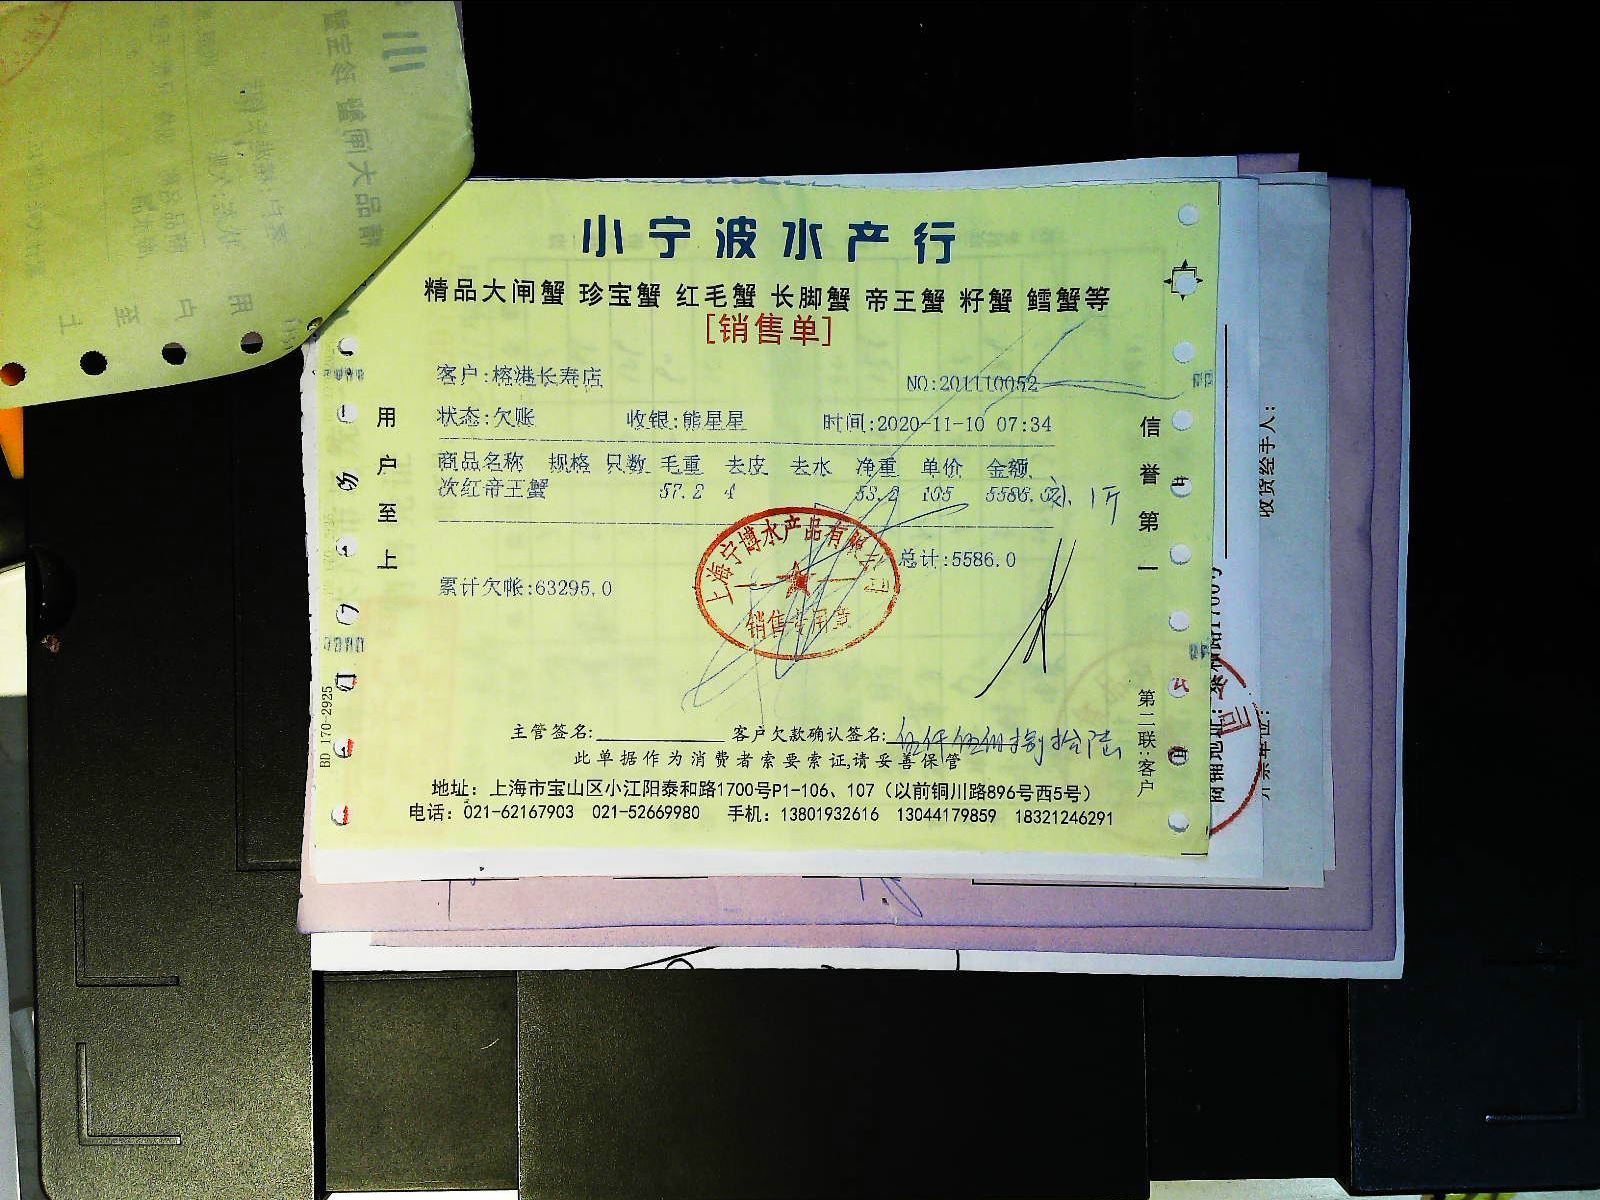 小宁波水产行
精品大闸蟹 珍宝蟹 红毛蟹 长脚蟹 帝王蟹 籽蟹 鳕蟹等
[销售单]
客户:榕港长寿店 NO:201110052
状态:欠账 收银:熊星星 时间:2020-11-10 07:34
商品名称 规格 只数 毛重 去皮 去水 净重 单价 金额
次红帝王蟹 57.2 4 53.2 105 5586.0
总计:5586.0
累计欠帐:63295.0
上海宁博水产品有限公司
销售专用章
主管签名: 客户欠款确认签名: 伍仟伍佰捌拾陆
此单据作为消费者索要索证,请妥善保管
地址: 上海市宝山区小江阳泰和路1700号P1-106、107(以前铜川路896号西5号)
电话: 021-62167903 021-52669980 手机: 13801932616 13044179859 18321246291
用户至上
信誉第一
第二联:客户
BD 170-2925
收货经手人: